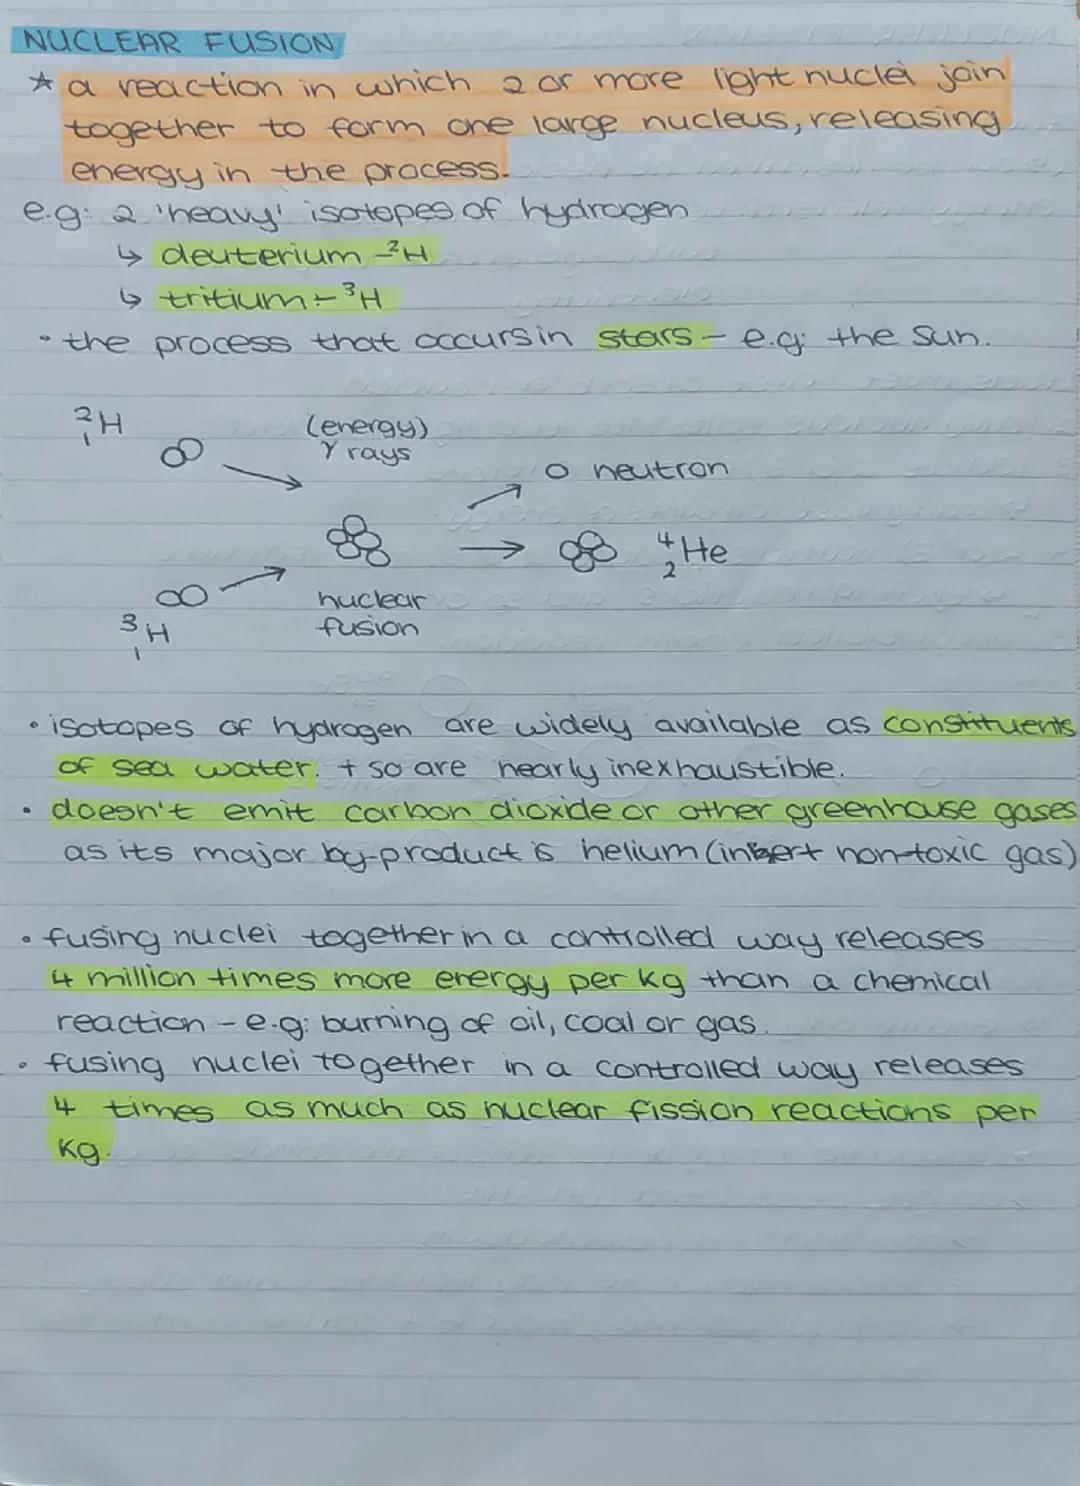 NUCLEAR FUSION
☆ a reaction in which 2 or more light nuclei join
together to form one large nucleus, releasing
energy in the process.
e.g: 2 'heavy' isotopes of hydrogen
↳ deuterium - ²H
↳ tritium - ³H
• the process that occurs in stars - e.g: the sun.
²₁H
(energy)
γ rays
neutron
⁴₂He
³₁H
nuclear
fusion
• isotopes of hydrogen are widely available as constituents
of sea water. + so are nearly inexhaustible.
• doesn't emit carbon dioxide or other greenhouse gases
as its major by-product is helium (inert non-toxic gas)
• fusing nuclei together in a controlled way releases
4 million times more energy per kg than a chemical
reaction - e.g: burning of oil, coal or gas.
• fusing nuclei together in a controlled way releases
4 times as much as nuclear fission reactions per
kg.